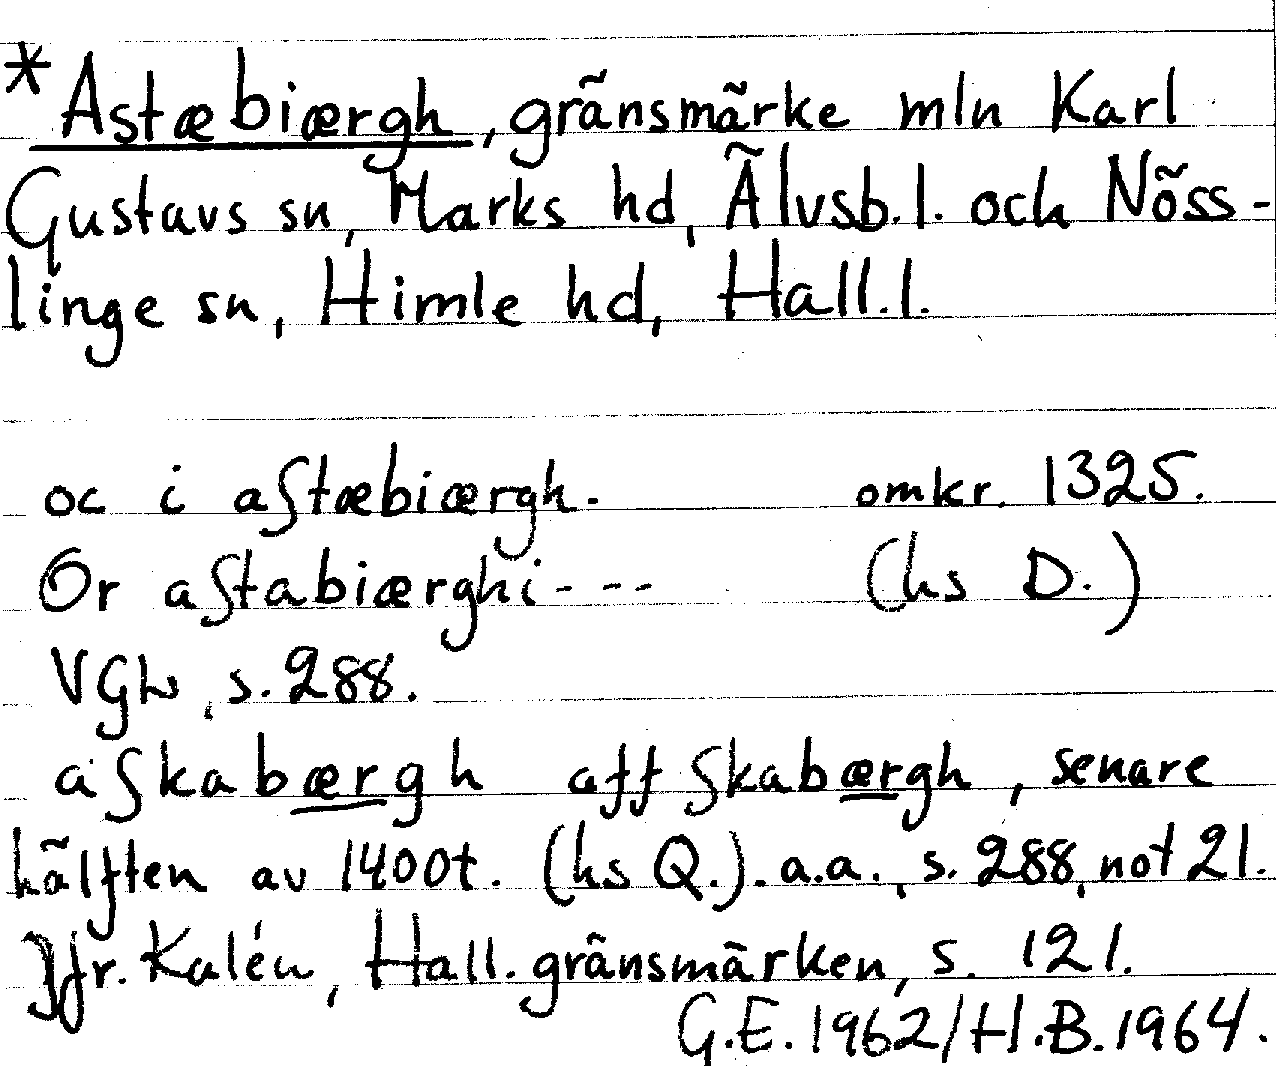 *Astæbiærgh, gränsmärke mln Karl
Gustavs sn, Marks hd, Älvsb.l. och Nöss-
linge sn, Himle hd, Hall.l.
oc i aſtæbiærgh. omkr. 1325.
Or aſtabiærghi--- (hs D.)
VGL, s. 288.
aſkabærgh aff ſkabærgh, senare
hälften av 1400t. (hs Q.). a.a., s. 288, not 21.
Jfr. Kalén, Hall. gränsmärken, s. 121.
G.E. 1962/H.B. 1964.